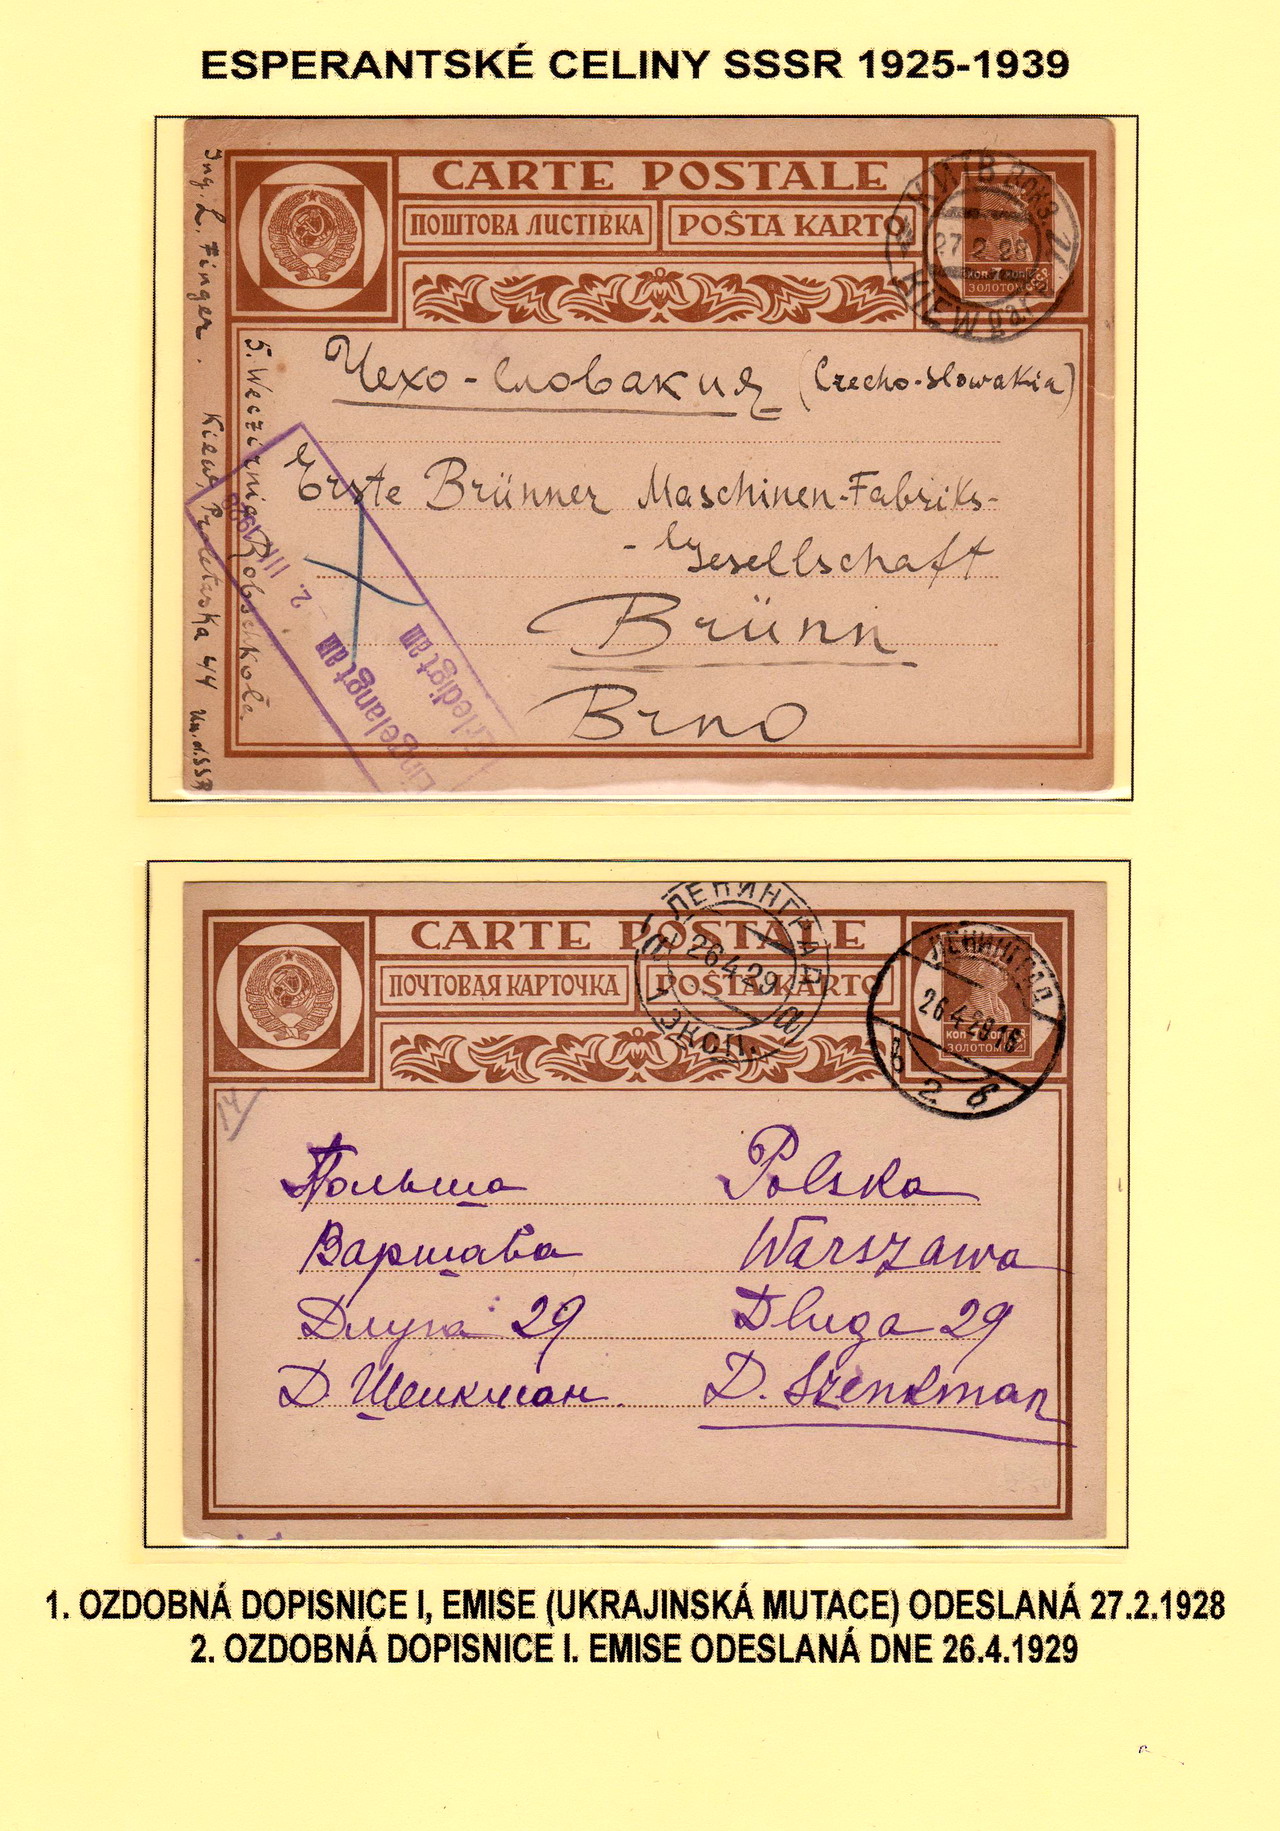 ESPERANTSKÉ CELINY SSSR 1925-1939
CARTE POSTALE
ПОШТОВА ЛИСТІВКА
POŜTA KARTO
КИЇВ вокз.
27 2 28
KIEW gare
ЗОЛОТОМ
Ing. L. Finger.
Kiew, Proletarska 44
5. Weczirnia Robschkola.
Чехо-Словакия (Czecho-Slowakia)
Erste Brünner Maschinen-Fabriks-
-Gesellschaft
Brünn
Brno
Eingelangt am
2. III 1928
Erledigt am
CARTE POSTALE
ПОЧТОВАЯ КАРТОЧКА
POŜTA KARTO
ЛЕНИНГРАД
26.4.29
1 ЭКСП.
ЛЕНИНГРАД
26.4.29
ЗОЛОТОМ
14
Польша
Варшава
Длуга 29
Д. Шенкман
Polska
Warszawa
Dluga 29
D. Szenkman
1. OZDOBNÁ DOPISNICE I, EMISE (UKRAJINSKÁ MUTACE) ODESLANÁ 27.2.1928
2. OZDOBNÁ DOPISNICE I. EMISE ODESLANÁ DNE 26.4.1929